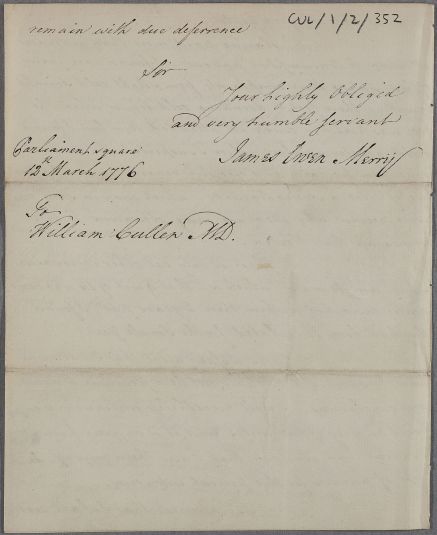 CUL/1/2/352
remain with due deferrence
Sir
Your highly Obliged
and very humble servant
James Ewen Merrys
Parliament square
12th March 1776
To
William Cullen MD.